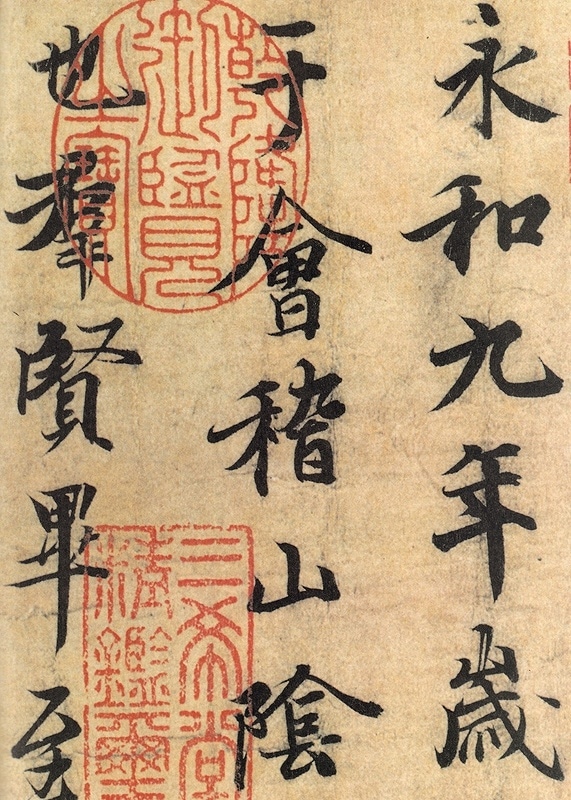 永和九年歲
于會稽山陰
也羣賢畢至
乾隆
御覽
之寶
三希堂
精鑑璽